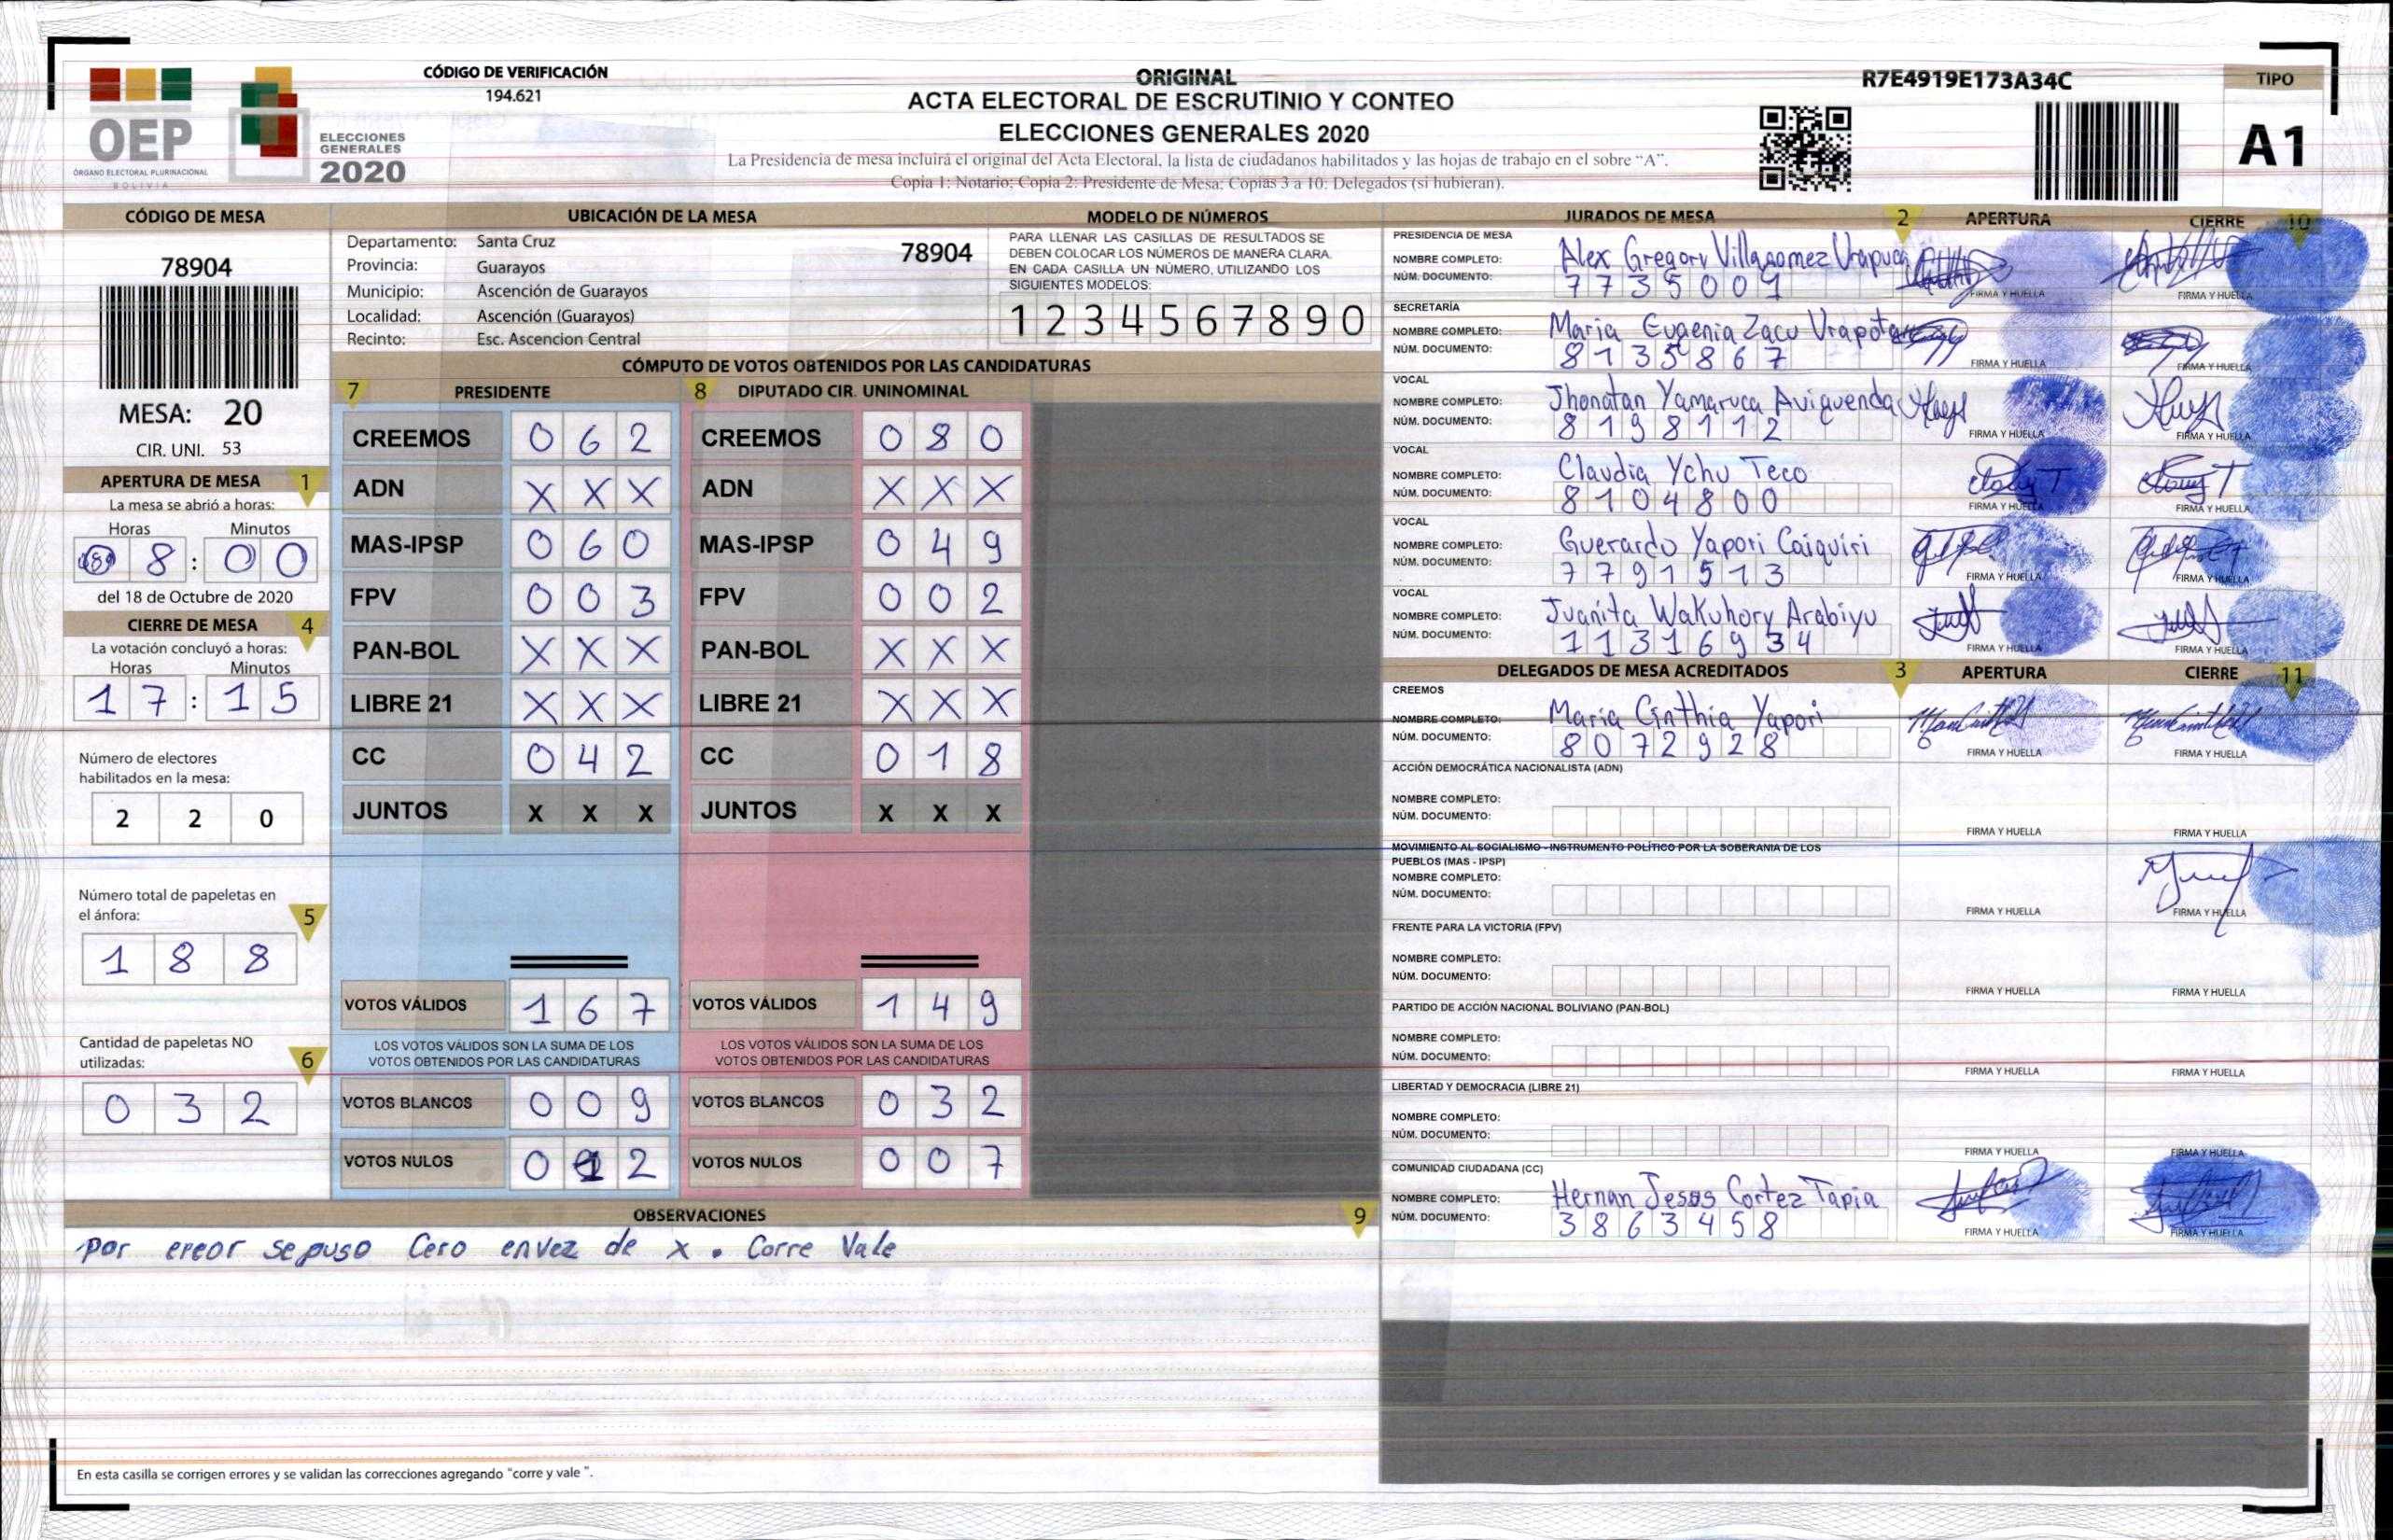 CÓDIGO DE VERIFICACIÓN
194.621
OEP
ÓRGANO ELECTORAL PLURINACIONAL
BOLIVIA
ELECCIONES
GENERALES
2020
ORIGINAL
ACTA ELECTORAL DE ESCRUTINIO Y CONTEO
ELECCIONES GENERALES 2020
La Presidencia de mesa incluirá el original del Acta Electoral, la lista de ciudadanos habilitados y las hojas de trabajo en el sobre “A”.
Copia 1: Notario; Copia 2: Presidente de Mesa; Copias 3 a 10: Delegados (si hubieran).
R7E4919E173A34C
TIPO
A1
CÓDIGO DE MESA
78904
MESA: 20
CIR. UNI. 53
APERTURA DE MESA 1
La mesa se abrió a horas:
Horas Minutos
8 : 0 0
del 18 de Octubre de 2020
CIERRE DE MESA 4
La votación concluyó a horas:
Horas Minutos
1 7 : 1 5
Número de electores
habilitados en la mesa:
2 2 0
Número total de papeletas en
el ánfora: 5
1 8 8
Cantidad de papeletas NO
utilizadas: 6
0 3 2
UBICACIÓN DE LA MESA
Departamento: Santa Cruz
78904
Provincia: Guarayos
Municipio: Ascención de Guarayos
Localidad: Ascención (Guarayos)
Recinto: Esc. Ascencion Central
MODELO DE NÚMEROS
PARA LLENAR LAS CASILLAS DE RESULTADOS SE
DEBEN COLOCAR LOS NÚMEROS DE MANERA CLARA.
EN CADA CASILLA UN NÚMERO, UTILIZANDO LOS
SIGUIENTES MODELOS:
1 2 3 4 5 6 7 8 9 0
CÓMPUTO DE VOTOS OBTENIDOS POR LAS CANDIDATURAS
7 PRESIDENTE 8 DIPUTADO CIR. UNINOMINAL
CREEMOS 0 6 2 CREEMOS 0 8 0
ADN X X X ADN X X X
MAS-IPSP 0 6 0 MAS-IPSP 0 4 9
FPV 0 0 3 FPV 0 0 2
PAN-BOL X X X PAN-BOL X X X
LIBRE 21 X X X LIBRE 21 X X X
CC 0 4 2 CC 0 1 8
JUNTOS X X X JUNTOS X X X
VOTOS VÁLIDOS 1 6 7 VOTOS VÁLIDOS 1 4 9
LOS VOTOS VÁLIDOS SON LA SUMA DE LOS LOS VOTOS VÁLIDOS SON LA SUMA DE LOS
VOTOS OBTENIDOS POR LAS CANDIDATURAS VOTOS OBTENIDOS POR LAS CANDIDATURAS
VOTOS BLANCOS 0 0 9 VOTOS BLANCOS 0 3 2
VOTOS NULOS 0 1 2 VOTOS NULOS 0 0 7
OBSERVACIONES 9
por ereor se puso Cero envez de x . Corre Vale
En esta casilla se corrigen errores y se validan las correcciones agregando “corre y vale ”.
JURADOS DE MESA 2 APERTURA CIERRE 10
PRESIDENCIA DE MESA
NOMBRE COMPLETO: Alex Gregory Villagomez Urapuca
NÚM. DOCUMENTO: 7735009
FIRMA Y HUELLA FIRMA Y HUELLA
SECRETARÍA
NOMBRE COMPLETO: Maria Eugenia Zacu Urapote
NÚM. DOCUMENTO: 8135867
FIRMA Y HUELLA FIRMA Y HUELLA
VOCAL
NOMBRE COMPLETO: Jhonatan Yamaruca Aviquenda
NÚM. DOCUMENTO: 8198112
FIRMA Y HUELLA FIRMA Y HUELLA
VOCAL
NOMBRE COMPLETO: Claudia Ychu Teco
NÚM. DOCUMENTO: 8104800
FIRMA Y HUELLA FIRMA Y HUELLA
VOCAL
NOMBRE COMPLETO: Guerardo Yapori Caiquiri
NÚM. DOCUMENTO: 7791513
FIRMA Y HUELLA FIRMA Y HUELLA
VOCAL
NOMBRE COMPLETO: Juanita Wakuhory Arabiyu
NÚM. DOCUMENTO: 11316934
FIRMA Y HUELLA FIRMA Y HUELLA
DELEGADOS DE MESA ACREDITADOS 3 APERTURA CIERRE 11
CREEMOS
NOMBRE COMPLETO: Maria Cinthia Yapori
NÚM. DOCUMENTO: 8072928
FIRMA Y HUELLA FIRMA Y HUELLA
ACCIÓN DEMOCRÁTICA NACIONALISTA (ADN)
NOMBRE COMPLETO:
NÚM. DOCUMENTO:
FIRMA Y HUELLA FIRMA Y HUELLA
MOVIMIENTO AL SOCIALISMO - INSTRUMENTO POLÍTICO POR LA SOBERANIA DE LOS
PUEBLOS (MAS - IPSP)
NOMBRE COMPLETO:
NÚM. DOCUMENTO:
FIRMA Y HUELLA FIRMA Y HUELLA
FRENTE PARA LA VICTORIA (FPV)
NOMBRE COMPLETO:
NÚM. DOCUMENTO:
FIRMA Y HUELLA FIRMA Y HUELLA
PARTIDO DE ACCIÓN NACIONAL BOLIVIANO (PAN-BOL)
NOMBRE COMPLETO:
NÚM. DOCUMENTO:
FIRMA Y HUELLA FIRMA Y HUELLA
LIBERTAD Y DEMOCRACIA (LIBRE 21)
NOMBRE COMPLETO:
NÚM. DOCUMENTO:
FIRMA Y HUELLA FIRMA Y HUELLA
COMUNIDAD CIUDADANA (CC)
NOMBRE COMPLETO: Hernan Jesus Cortez Tapia
NÚM. DOCUMENTO: 3863458
FIRMA Y HUELLA FIRMA Y HUELLA